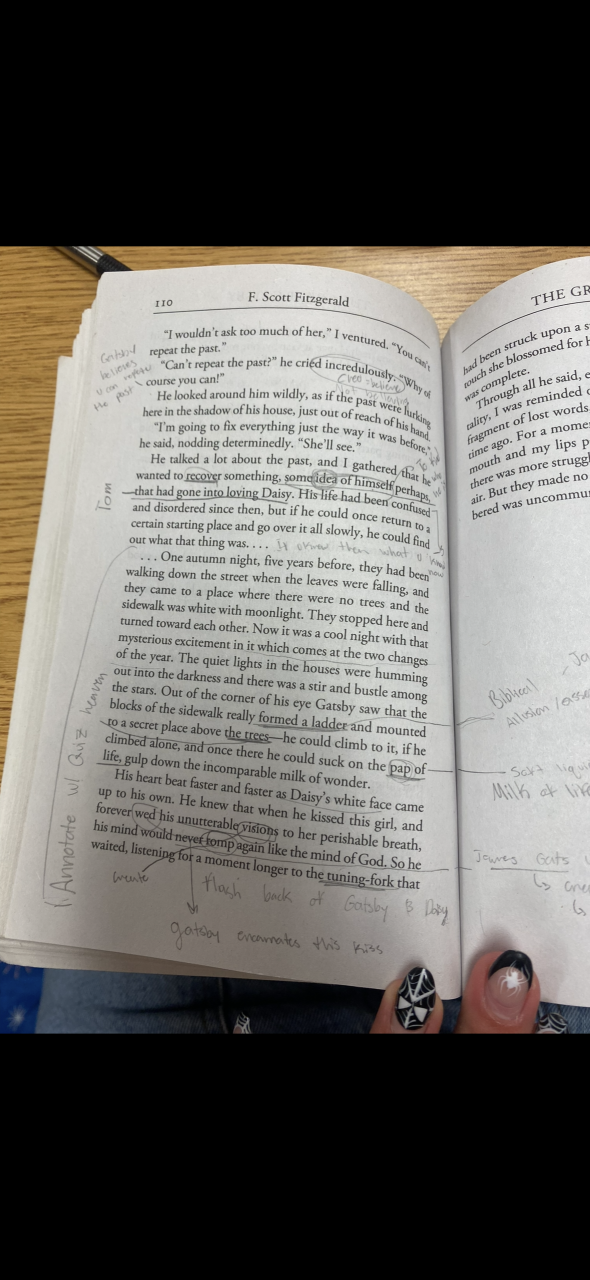 110
F. Scott Fitzgerald
"I wouldn't ask too much of her," I ventured. "You can't
repeat the past."
"Can't repeat the past?" he cried incredulously. "Why of
course you can!"
He looked around him wildly, as if the past were lurking
here in the shadow of his house, just out of reach of his hand.
"I'm going to fix everything just the way it was before,"
he said, nodding determinedly. "She'll see."
He talked a lot about the past, and I gathered that he
wanted to recover something, some idea of himself perhaps,
that had gone into loving Daisy. His life had been confused
and disordered since then, but if he could once return to a
certain starting place and go over it all slowly, he could find
out what that thing was. . . .
. . . One autumn night, five years before, they had been
walking down the street when the leaves were falling, and
they came to a place where there were no trees and the
sidewalk was white with moonlight. They stopped here and
turned toward each other. Now it was a cool night with that
mysterious excitement in it which comes at the two changes
of the year. The quiet lights in the houses were humming
out into the darkness and there was a stir and bustle among
the stars. Out of the corner of his eye Gatsby saw that the
blocks of the sidewalk really formed a ladder and mounted
to a secret place above the trees—he could climb to it, if he
climbed alone, and once there he could suck on the pap of
life, gulp down the incomparable milk of wonder.
His heart beat faster and faster as Daisy's white face came
up to his own. He knew that when he kissed this girl, and
forever wed his unutterable visions to her perishable breath,
his mind would never romp again like the mind of God. So he
waited, listening for a moment longer to the tuning-fork that
Gatsby
believes
u can repeat
the past
Tom
Annotate w/ Quiz heaven
create
flash back of Gatsby & Daisy
gatsby this kiss
THE GR
had been struck upon a s
touch she blossomed for h
was complete.
Through all he said, e
tality, I was reminded o
fragment of lost words
time ago. For a mome
mouth and my lips p
there was more strugg
air. But they made no
bered was uncommu
Biblical
Allusion
Soft
Milk of